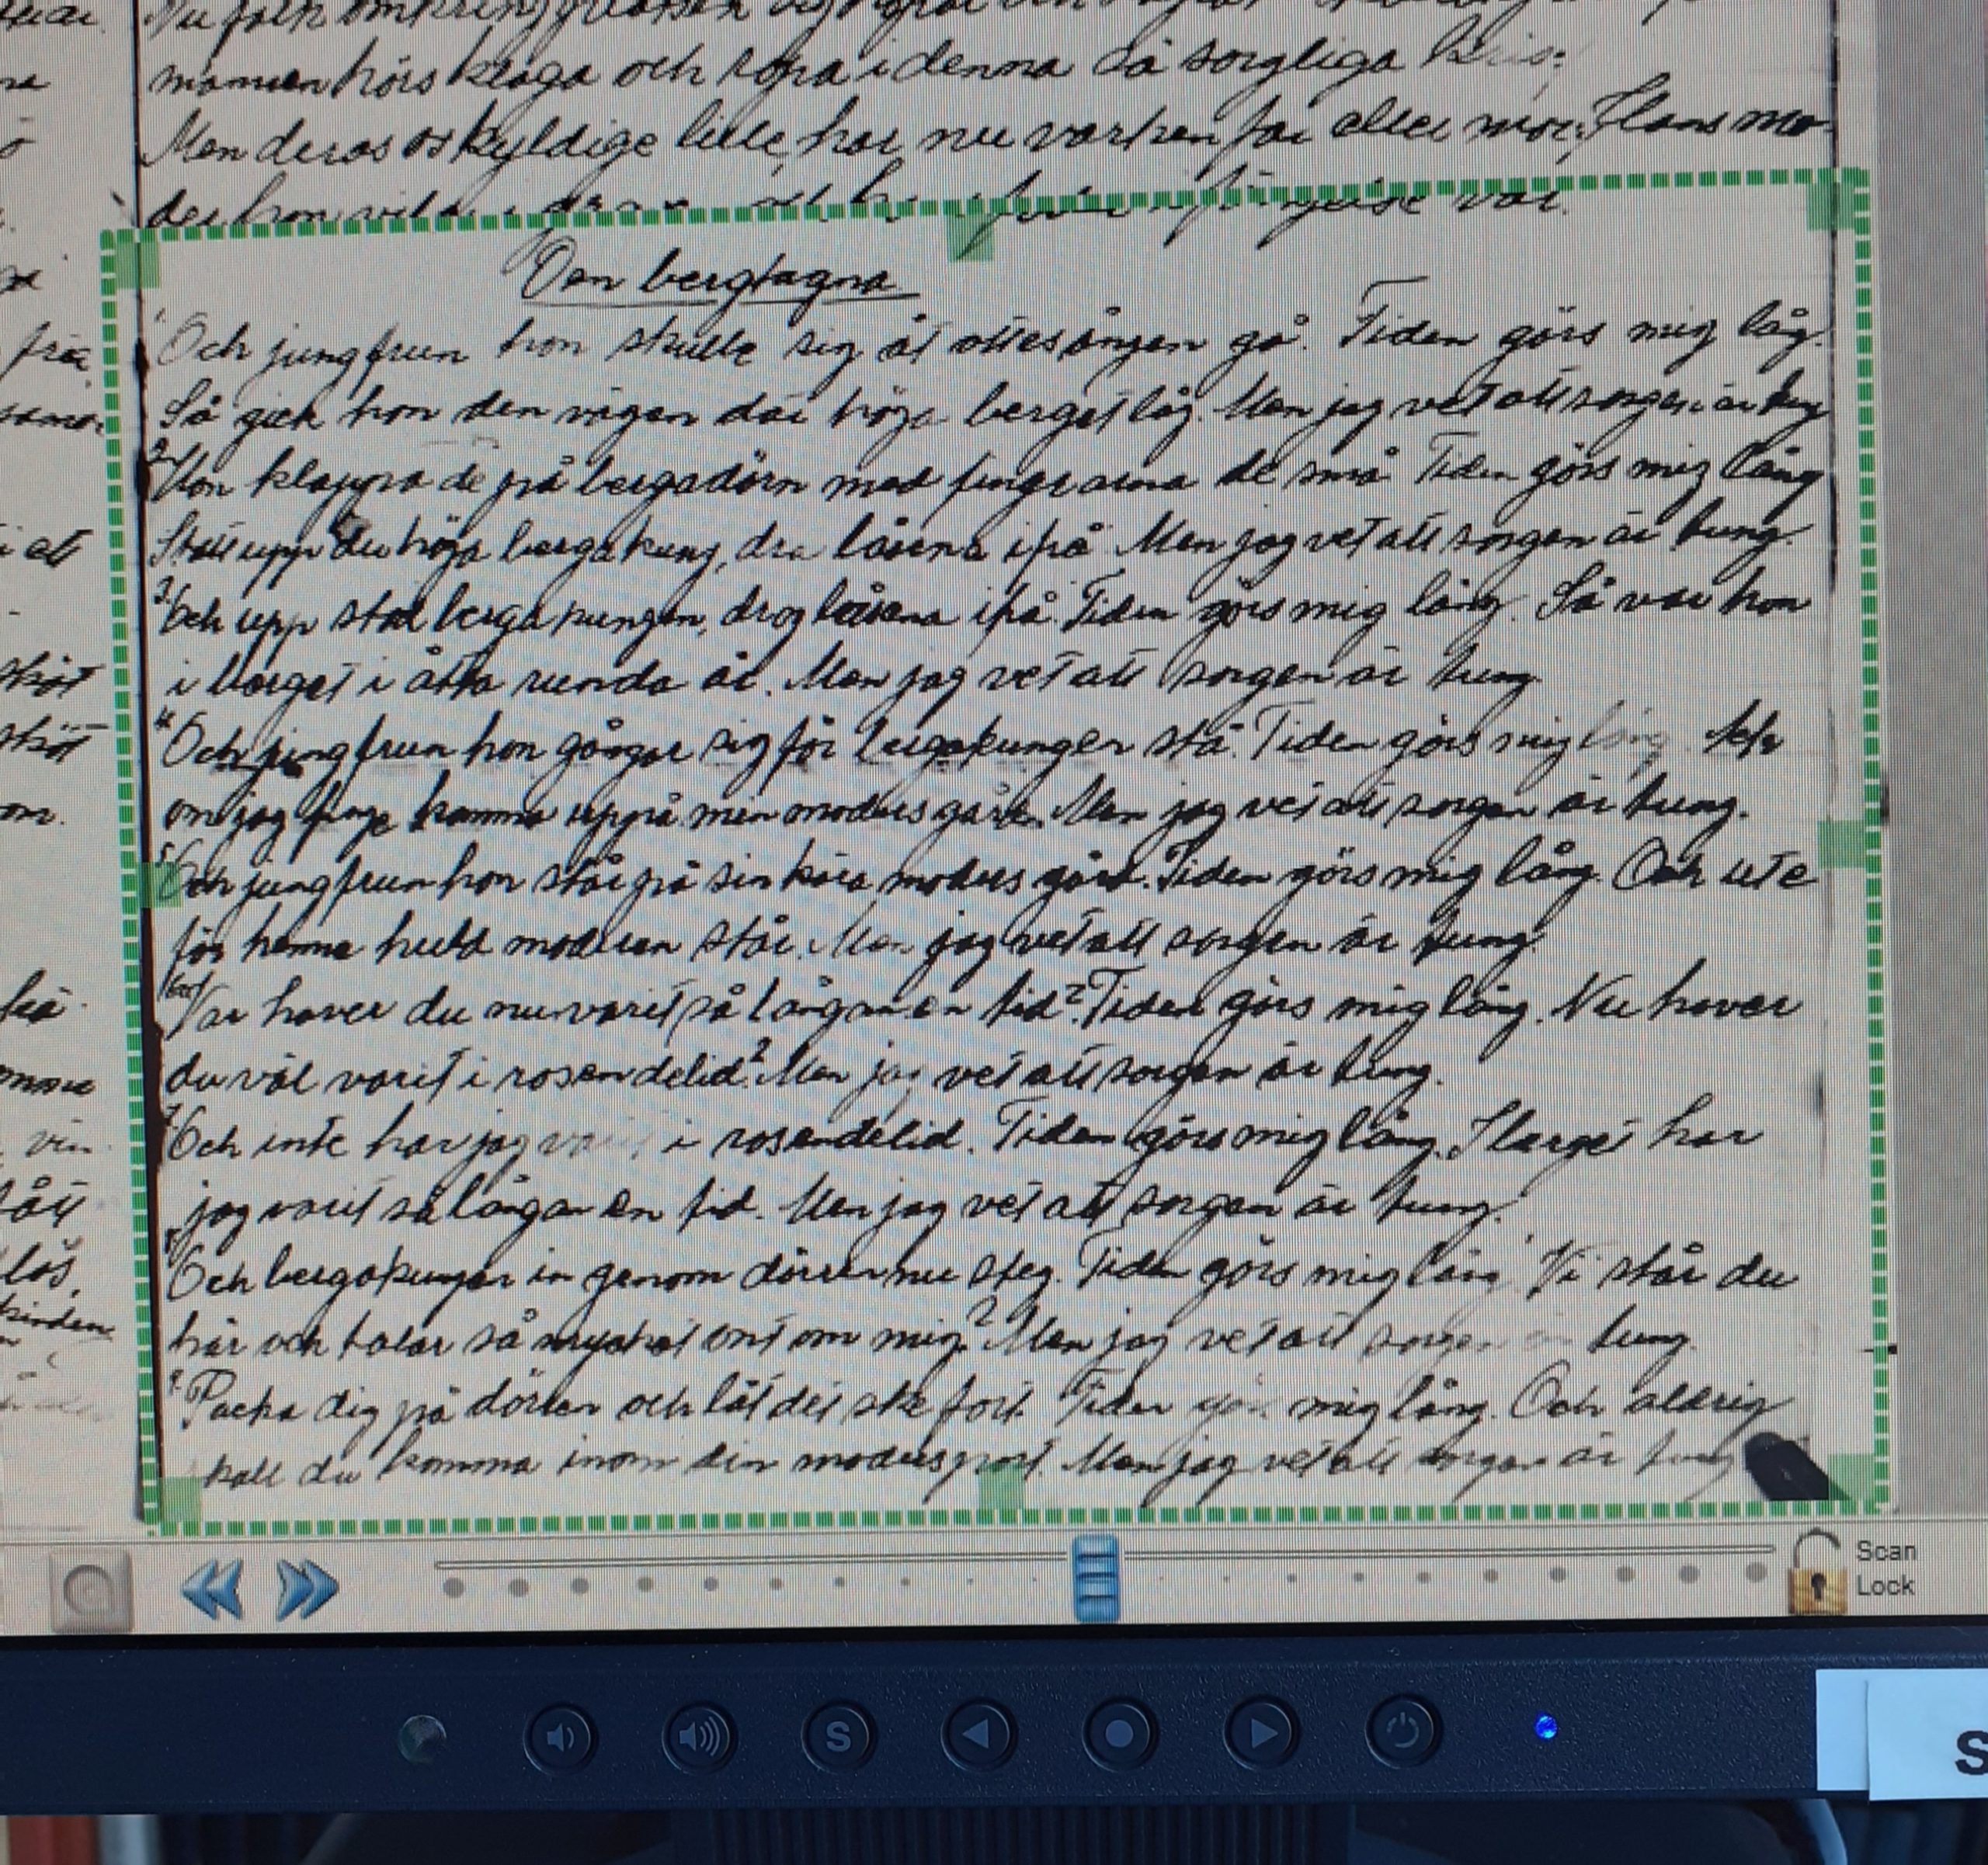 Nu folk omkring
mannen hörs klaga och ropa i denna så sorgliga
Men deras oskyldige lille, har nu varken far eller mor. Hans mo-
der hon var.
Den bergtagna
1 Och jungfrun hon skulle sig åt ottesången gå. Tiden görs mig lång.
Så gick hon den vägen där höga berget låg. Men jag vet att sorgen är tung
2 Hon klappade på bergadörn med fingrarna de små. Tiden görs mig lång
Statt upp du höga bergakung, dra låsena ifrå. Men jag vet att sorgen är tung.
3 Och upp stod bergakungen, drog låsena ifrå. Tiden görs mig lång. Så var hon
i berget i åtta runda år. Men jag vet att sorgen är tung.
4 Och jungfrun hon gångar sig för bergakungen stå. Tiden görs mig lång.
om jag finge komma uppå min moders gård. Men jag vet att sorgen är tung.
5 Och jungfrun hon står på sin kära moders gård. Tiden görs mig lång. Och ute
för henne huld modren står. Men jag vet att sorgen är tung.
Var haver du nu varit så långan en tid? Tiden görs mig lång. Nu haver
du väl varit i rosendelid? Men jag vet att sorgen är tung.
7 Och inte har jag varit i rosendelid. Tiden görs mig lång. I berget har
jag varit så långan en tid. Men jag vet att sorgen är tung.
8 Och bergakungen in genom dörren nu steg. Tiden görs mig lång. Vi står du
här och talar så mycket ont om mig? Men jag vet att sorgen är tung.
9. Packa dig på dörren och låt det ske fort. Tiden görs mig lång. Och aldrig
skall du komma inom din modersport. Men jag vet att sorgen är tung
Scan
Lock
S
S